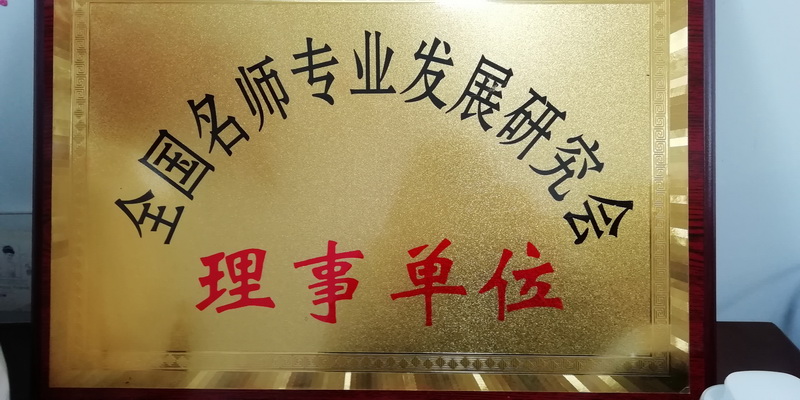 全国名师专业发展研究会
理事单位